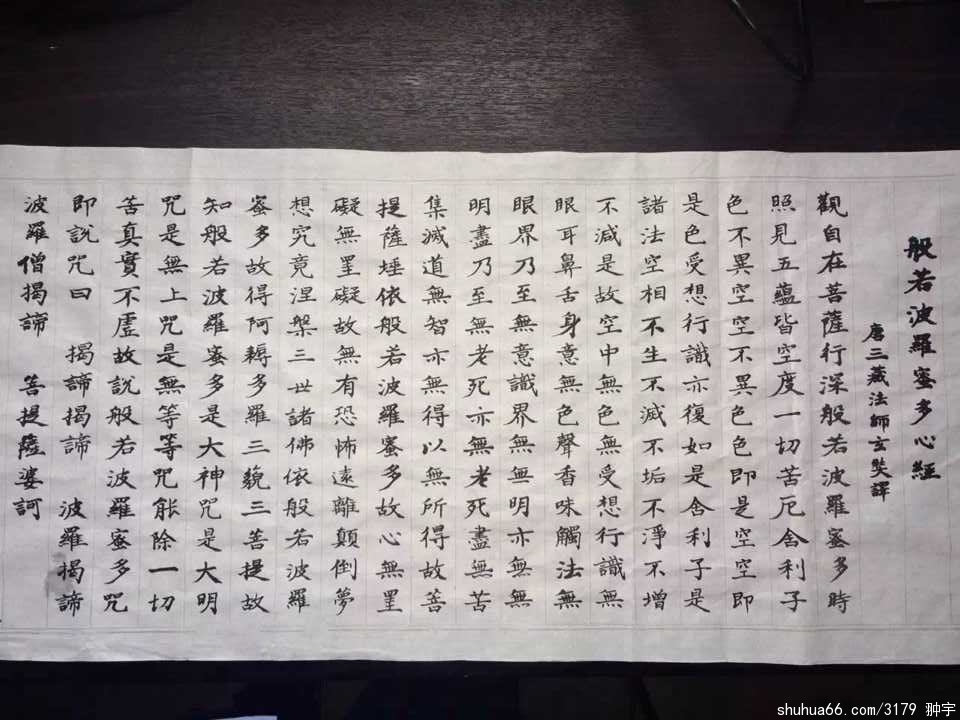 般若波羅蜜多心經
唐三藏法師玄奘譯
觀自在菩薩行深般若波羅蜜多時
照見五蘊皆空度一切苦厄舍利子
色不異空空不異色色即是空空即
是色受想行識亦復如是舍利子是
諸法空相不生不滅不垢不淨不增
不減是故空中無色無受想行識無
眼耳鼻舌身意無色聲香味觸法無
眼界乃至無意識界無無明亦無無
明盡乃至無老死亦無老死盡無苦
集滅道無智亦無得以無所得故菩
提薩埵依般若波羅蜜多故心無罣
礙無罣礙故無有恐怖遠離顛倒夢
想究竟涅槃三世諸佛依般若波羅
蜜多故得阿耨多羅三藐三菩提故
知般若波羅蜜多是大神咒是大明
咒是無上咒是無等等咒能除一切
苦真實不虛故說般若波羅蜜多咒
即說咒曰 揭諦揭諦 波羅揭諦
波羅僧揭諦 菩提薩婆訶
shuhua66.com/3179 翀宇